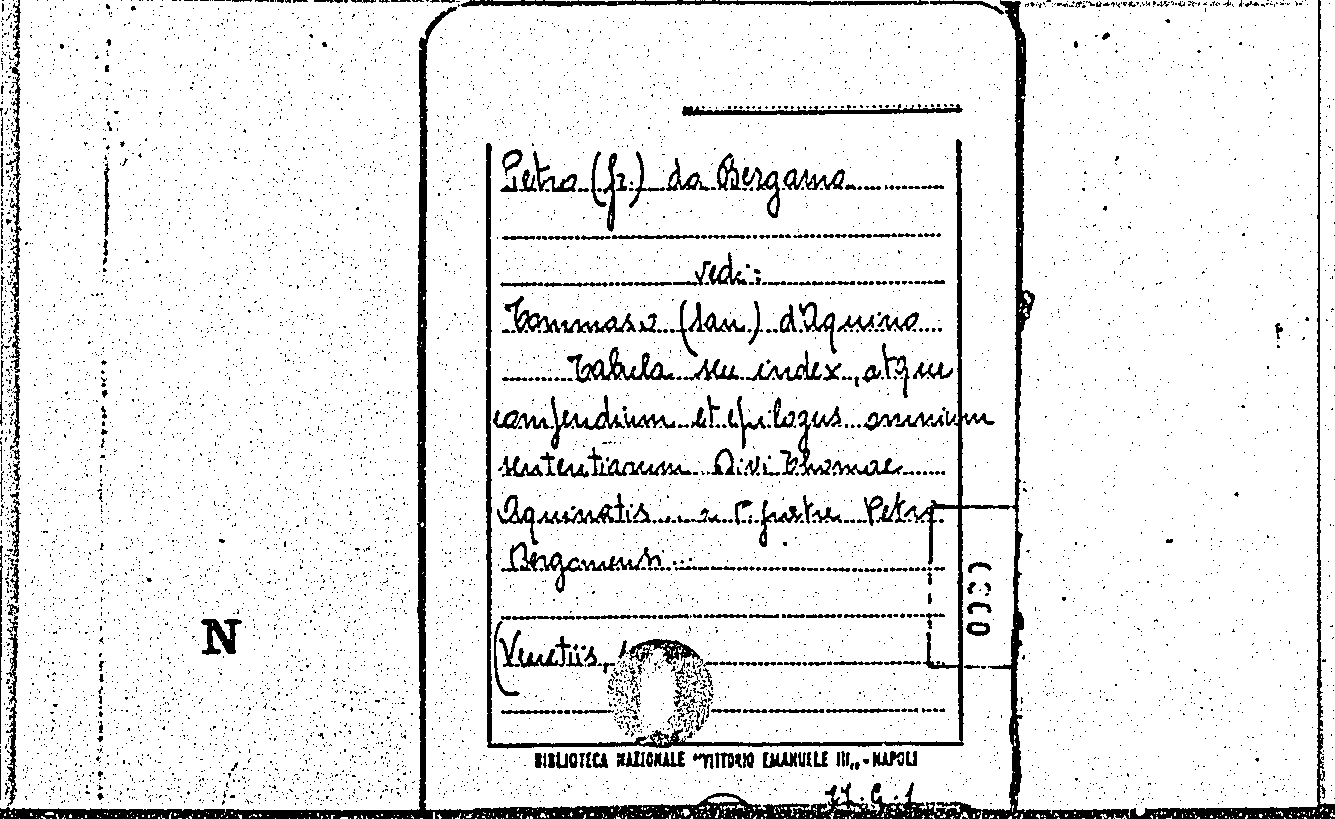 Petro (fr.) da Bergamo
vedi:
Tommaso (san) d'Aquino
Tabula seu index, atque
compendium et epilogus omnium
sententiarum Divi Thomae
Aquinatis... a F. fratre Petro
Bergamensi...
(Venetiis,
BIBLIOTECA NAZIONALE "VITTORIO EMANUELE III„ - NAPOLI
N